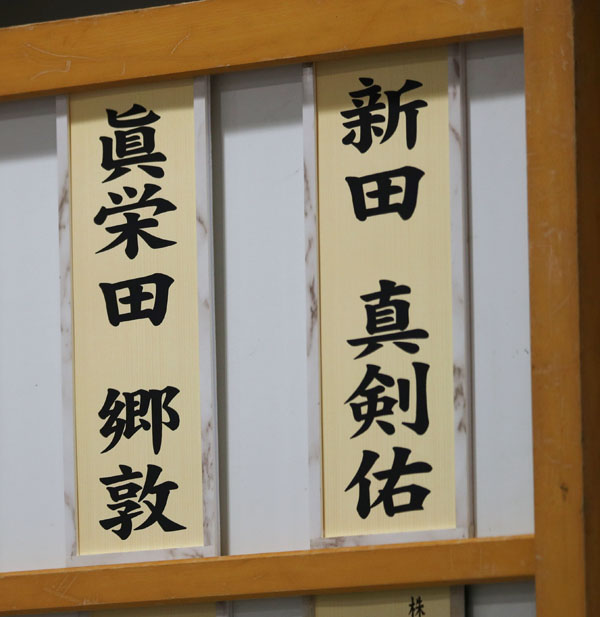 新田 真剣佑
眞栄田 郷敦
株